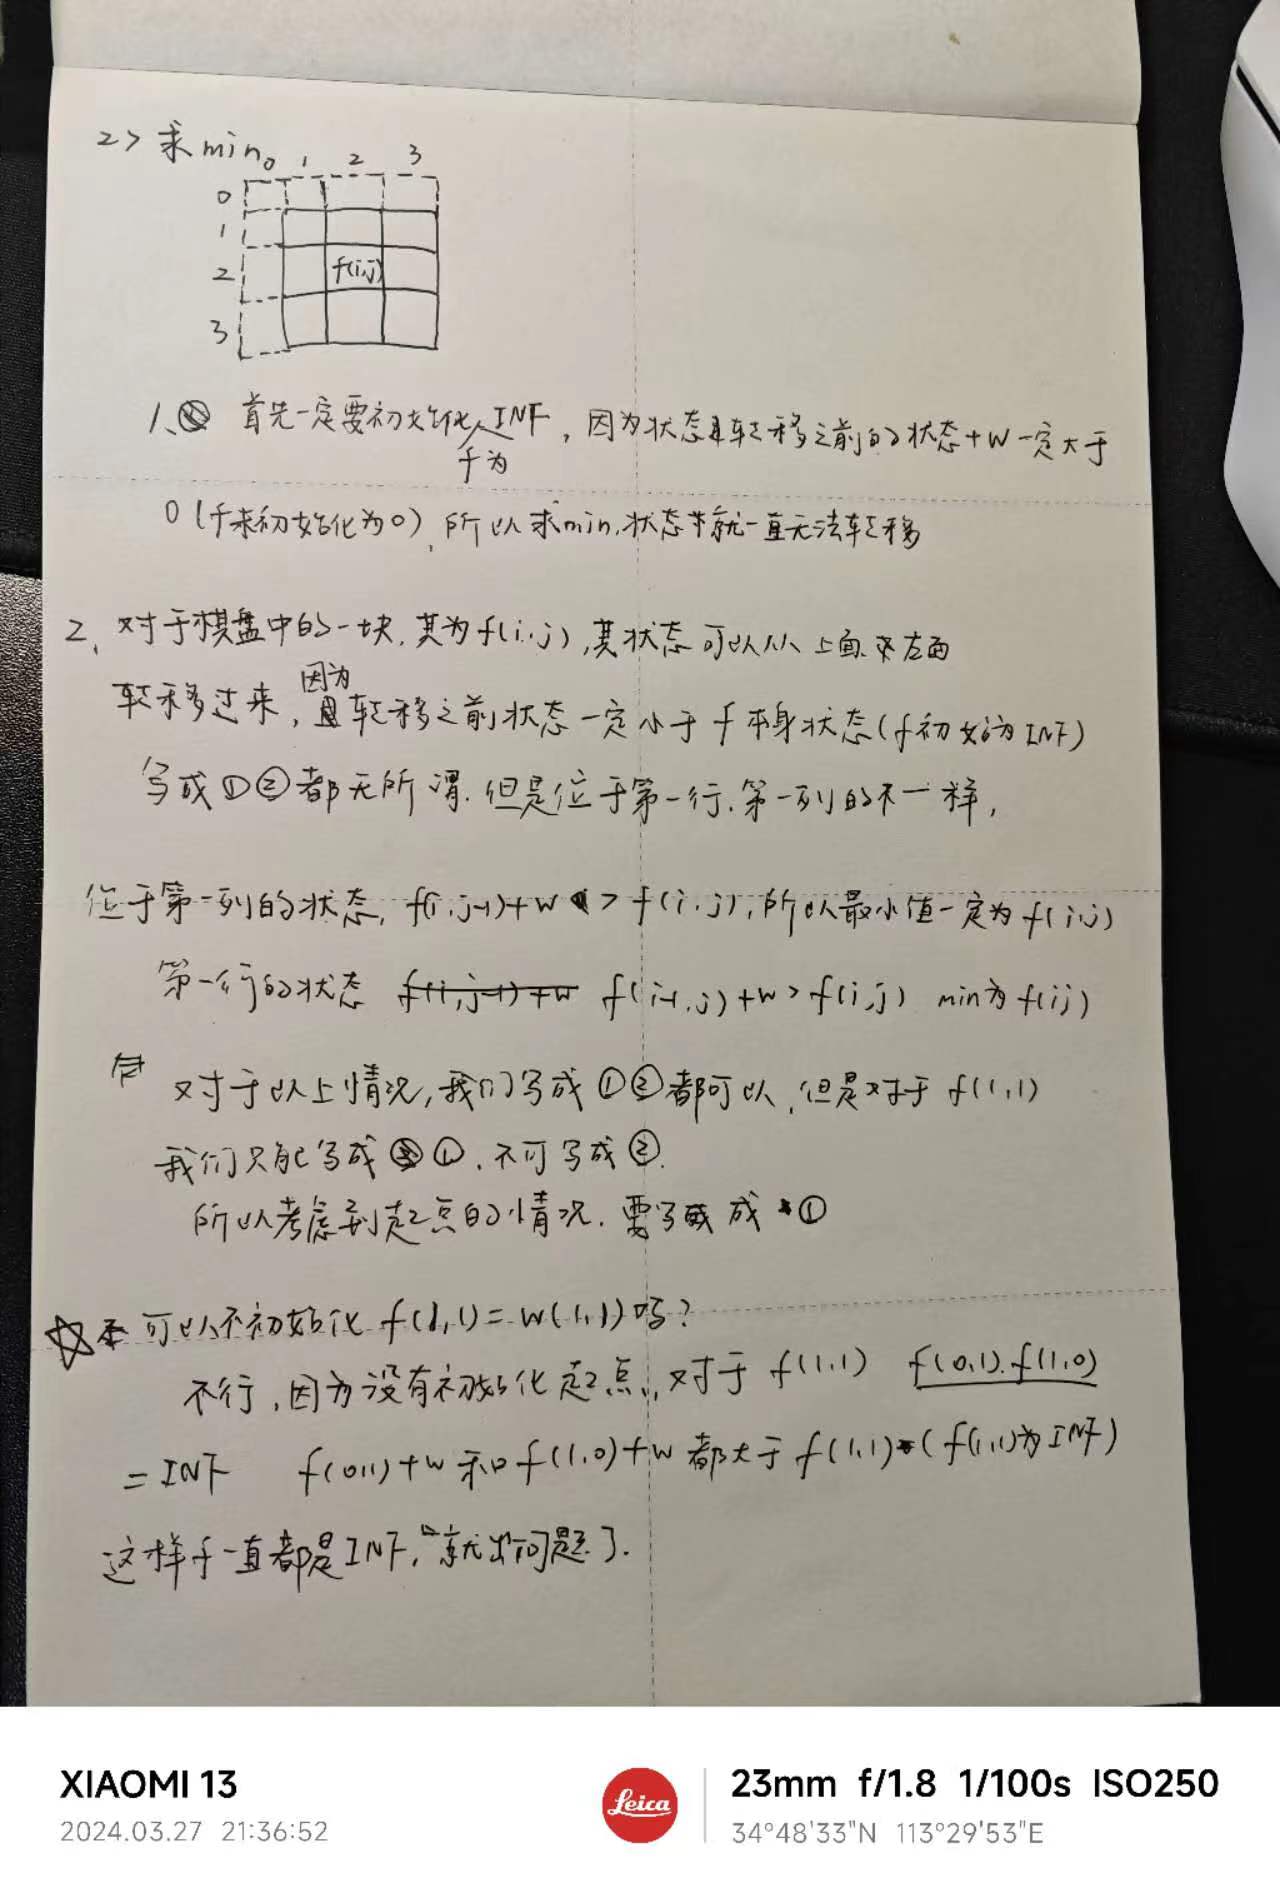 2> 求min
0 1 2 3
0
1
2 f(i,j)
3
1、首先一定要初始化f为INF，因为状态转移之前的状态+w一定大于
0(f未初始化为0)，所以求min，状态就一直无法转移
2、对于棋盘中的一块，其为f(i,j)，其状态可以从上面、左面
转移过来，因为转移之前状态一定小于f本身状态(f初始为INF)
写成①②都无所谓，但是位于第一行、第一列的不一样，
位于第一列的状态，f(i,j-1)+w > f(i,j)，所以最小值一定为f(i,j)
第一行的状态 f(i,j-1)+w f(i-1,j)+w > f(i,j) min为f(ij)
对于以上情况，我们写成①②都可以，但是对于f(1,1)
我们只能写成①，不可写成②.
所以考虑到起点的情况，要写成①
☆可以不初始化f(1,1)=w(1,1)吗?
不行，因为没有初始化起点，对于f(1,1) f(0,1).f(1,0)
=INF f(0,1)+w和f(1,0)+w都大于f(1,1)(f(1,1)为INF)
这样f一直都是INF，就出问题了.
XIAOMI 13
2024.03.27 21:36:52
Leica
23mm f/1.8 1/100s ISO250
34°48'33"N 113°29'53"E